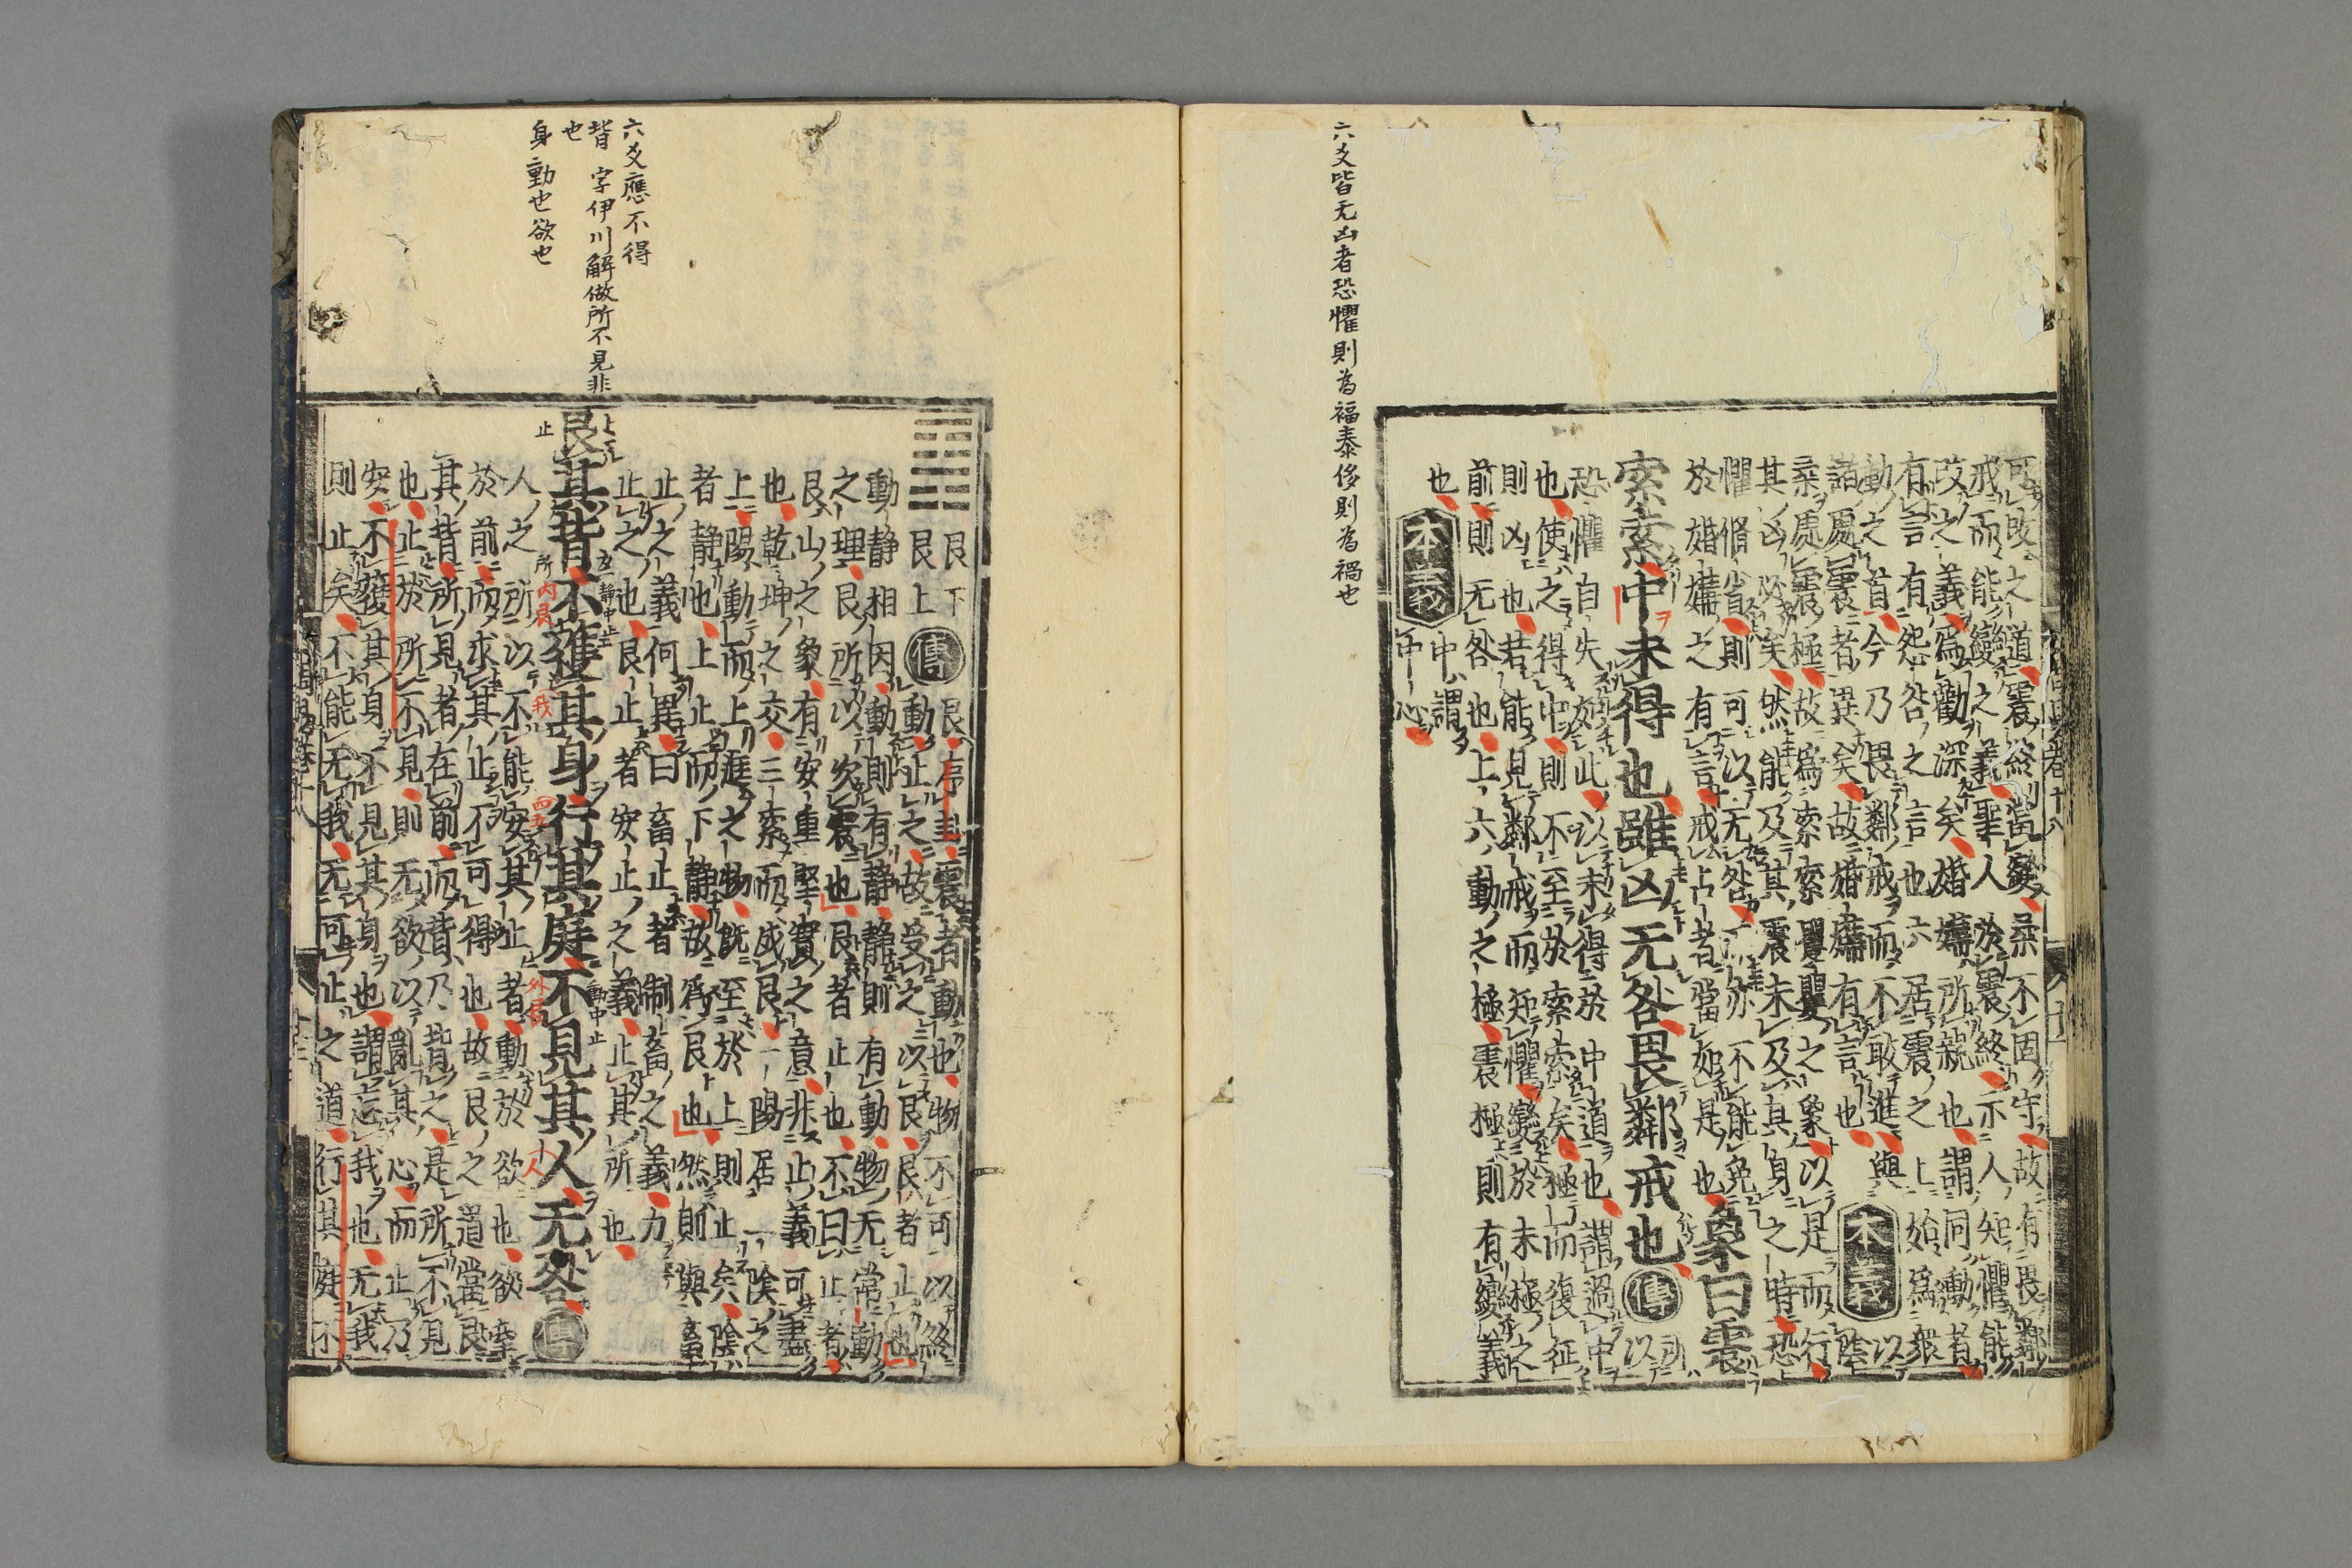 六爻皆无凶者恐懼則為福泰侈則為禍也
可改之道震終則當變柔不固守故有畏鄰
戒而能變之義聖人於震終示人知懼能
改之義為勸深矣婚媾所親也謂同動者
有言有怨咎之言也六居震之上始為衆
動之首今乃畏鄰戒而不敢進與
諸處震者異矣故婚媾有言也
本義
以
陰
柔處震極故為索索矍矍之象以是而行
其凶必矣然能及其震未及其身之時恐
懼脩省則可以无咎而亦不能免
於婚媾之有言戒占者當如是也
象曰震
索索中未得也雖凶无咎畏鄰戒也 傳 所以
恐懼自失如此以未得於中道也謂過中
也使之得中則不至於索索矣極而復征
則凶也若能見鄰戒而知懼變於未極之
前則无咎也上六動之極震極則有變義
也
本義
中謂
中心
六爻應不得
背字伊川解做所不見非
也
身動也欲也
艮下
艮上
傳
艮序卦震者動也物不可以終
動止之故受之以艮艮者止也
動靜相因動則有靜靜則有動物无常動
之理艮所以次震也艮者止也不曰止者
艮山之象有安重堅實之意非止義可盡
也乾坤之交三索而成艮一陽居二陰之
上陽動而上進之物既至於上則止矣陰
者靜也上止而下靜故為艮也然則與畜
止之義何異曰畜止者制畜之義力
止之也艮止者安止之義止其所也
艮其背不獲其身行其庭不見其人无咎 傳
人之所以不能安其止者動於欲也欲牽
於前而求其止不可得也故艮之道當艮
其背所見者在前而背乃背之是所不見
也止於所不見則无欲以亂其心而止乃
安不獲其身不見其身也謂忘我也无我
則止矣不能无我无可止之道行其庭不